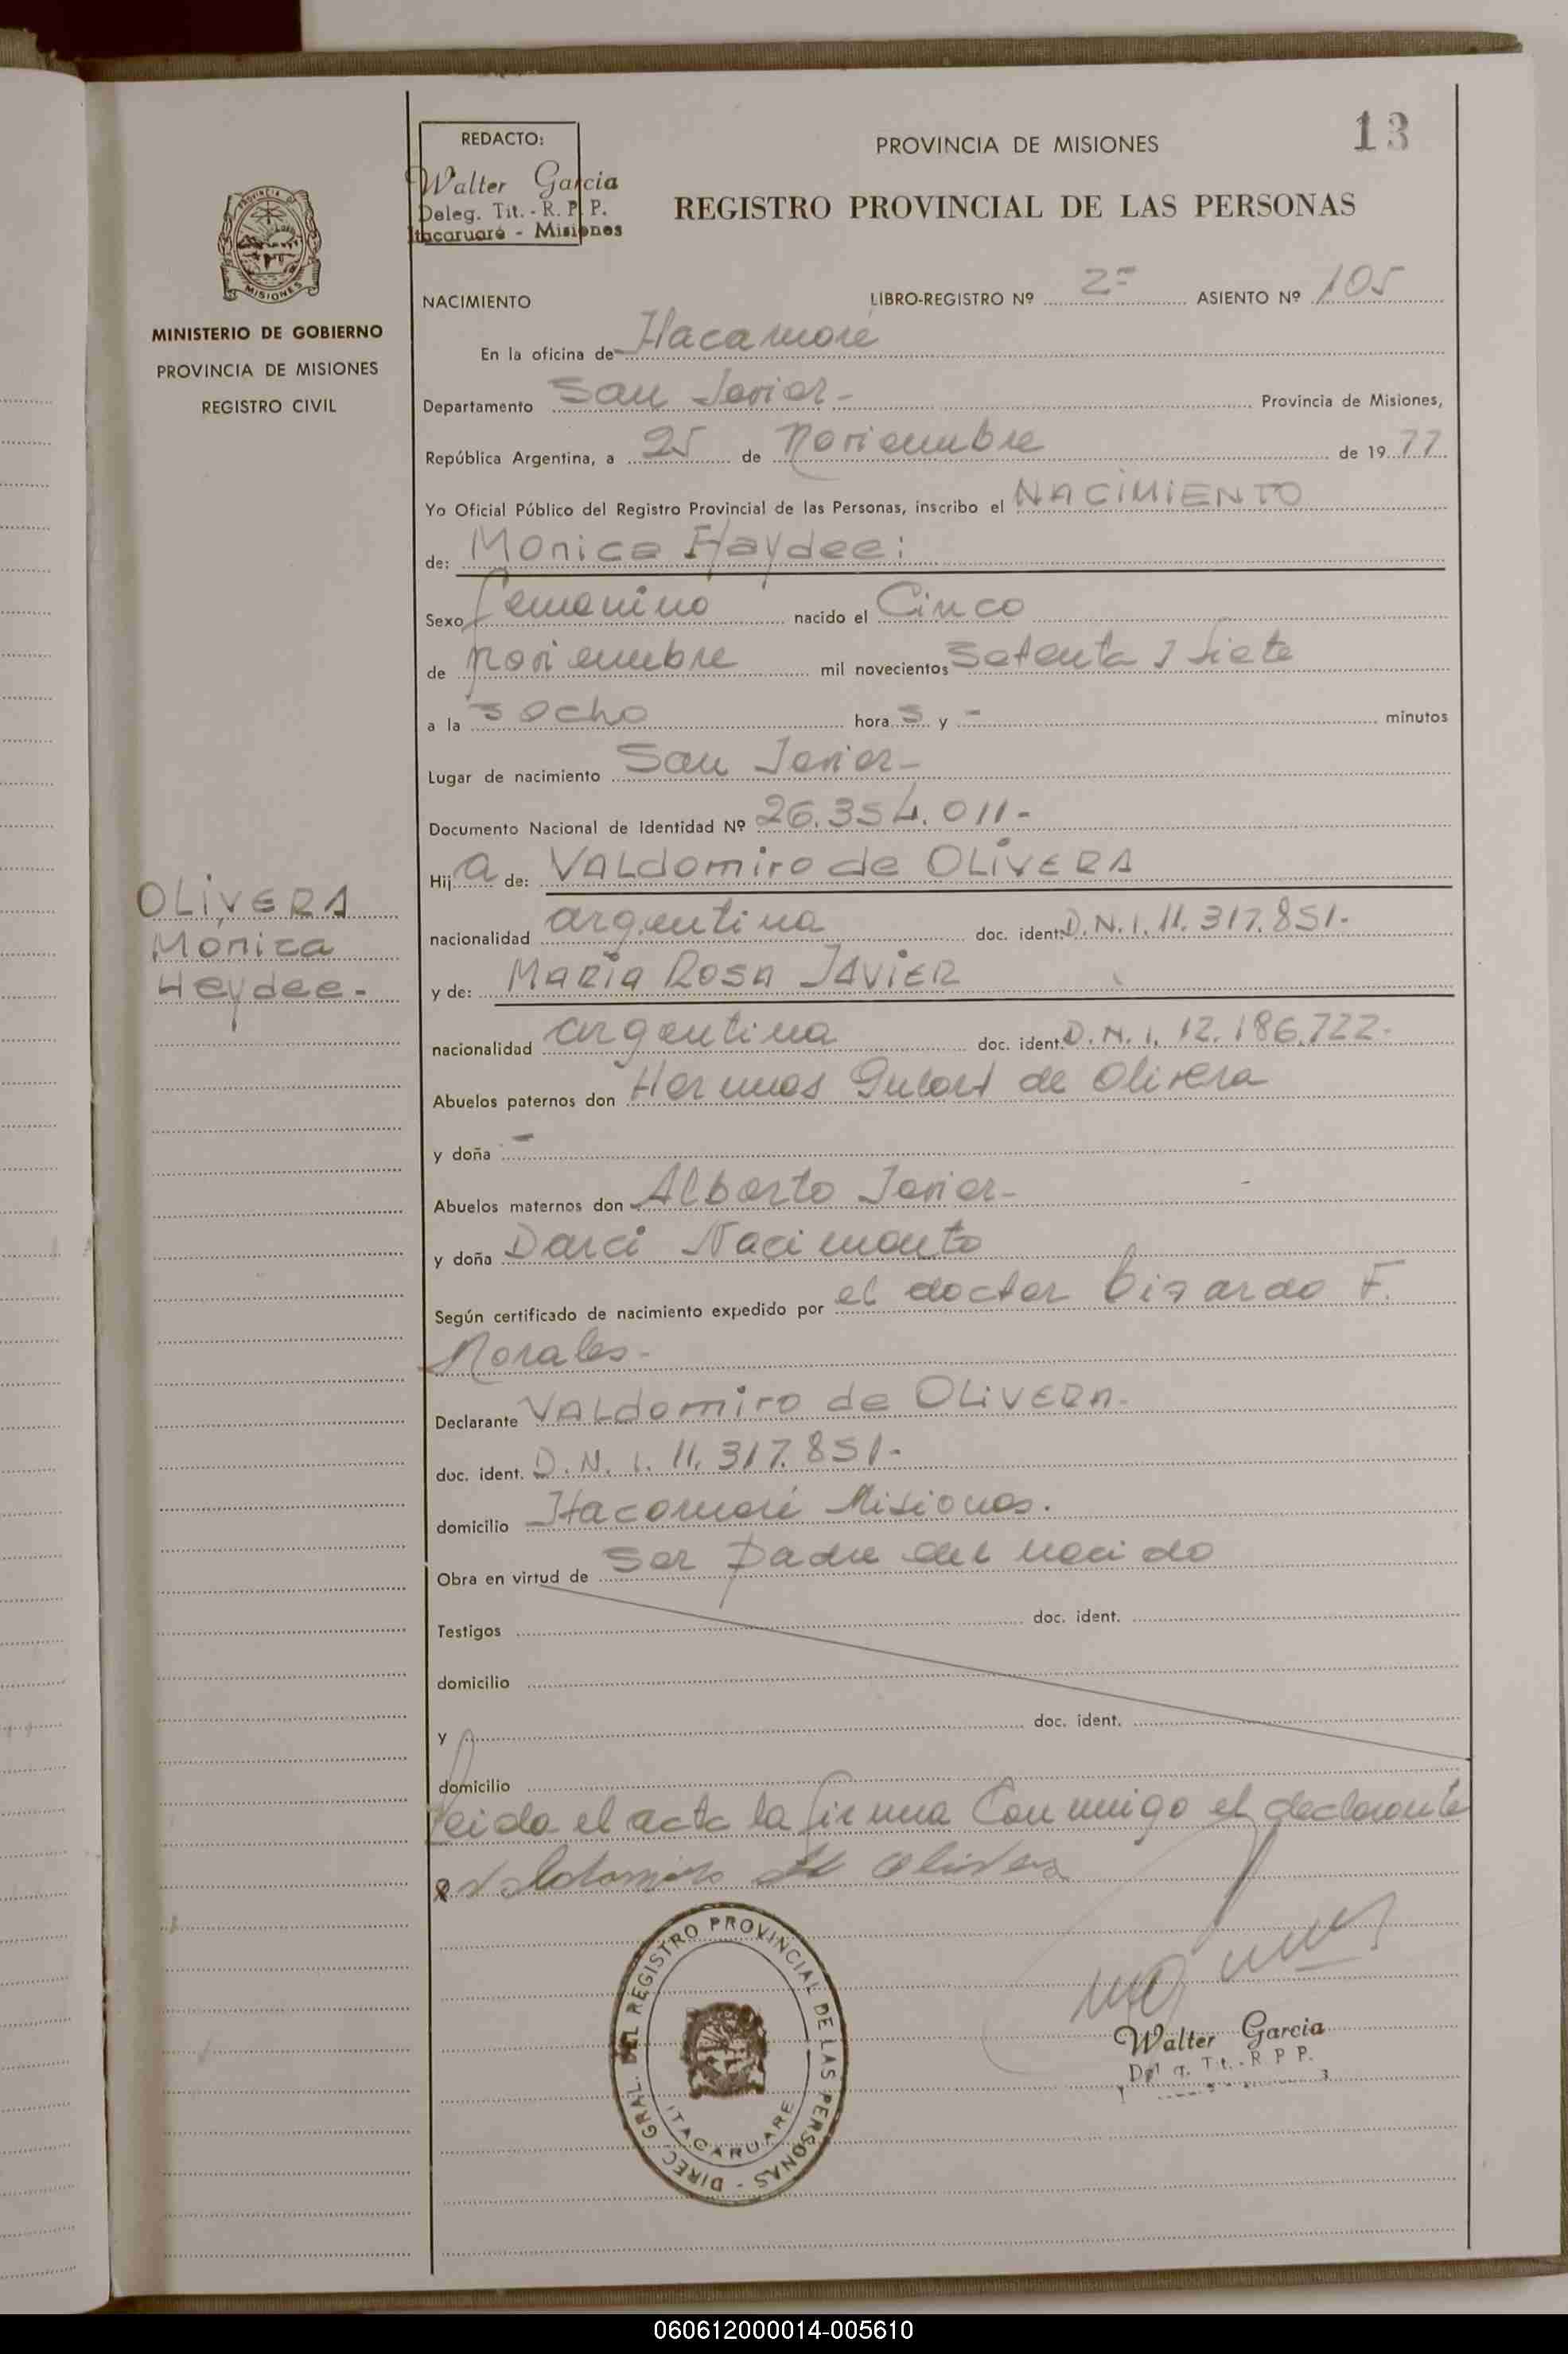 13
REDACTO:
Walter Garcia
Deleg. Tit. - R. P. P.
Itacaruaré - Misiones
PROVINCIA DE MISIONES
REGISTRO PROVINCIAL DE LAS PERSONAS
PROVINCIA
MISIONES
MINISTERIO DE GOBIERNO
PROVINCIA DE MISIONES
REGISTRO CIVIL
NACIMIENTO LIBRO-REGISTRO Nº 2= ASIENTO Nº 105
En la oficina de
Departamento San Javier - Provincia de Misiones,
República Argentina, a 25 de Noviembre de 1977
Yo Oficial Público del Registro Provincial de las Personas, inscribo el NACIMIENTO
de: Monica Haydee:
Sexo femenino nacido el Cinco
de noviembre mil novecientos Setenta y Siete
a la s ocho hora s y - minutos
Lugar de nacimiento San Javier -
Documento Nacional de Identidad Nº 26.354.011-
Hij a de: VALdomiro de OLiVERA
nacionalidad argentina doc. ident. D.N.I. 11.317.851-
y de: MARIA ROSA JAViER
nacionalidad argentina doc. ident. D.N.I. 12.186.722-
OLiVERA
Mónica
Heydee -
Abuelos paternos don de Olivera
y doña -
Abuelos maternos don Alberto Javier -
y doña Darci Nacimento
Según certificado de nacimiento expedido por el doctor F.
Morales -
Declarante VALdomiro de OLiVERA -
doc. ident. D.N.I. 11.317.851-
domicilio Misiones.
Obra en virtud de Ser padre del nacido
Testigos doc. ident.
domicilio
y doc. ident.
domicilio
Leida el acta la firma Conmigo el declarante
Valdomiro de Olivera
DIREC. GRAL. DEL REGISTRO PROVINCIAL DE LAS PERSONAS -
ITACARUARE
Walter Garcia
R P P.
060612000014-005610